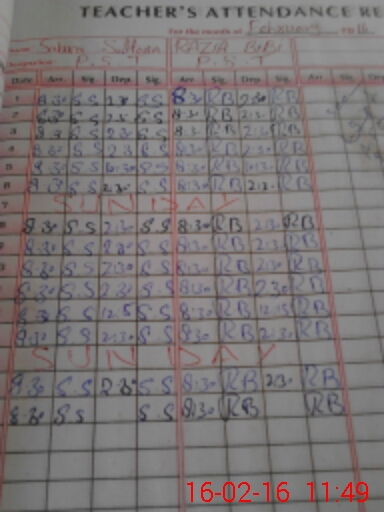 TEACHER'S ATTENDANCE RE
For the month of February 2016
Name Saltana RAZIA BIBI
P.S.T P.S.T
Date Arr. Sig. Dep. Sig. Arr. Sig. Dep. Sig. Arr. Sig.
1 8:30 S.S 2:30 S.S 8:30 RB 2:30 RB
2 8:30 S.S S.S 8:30 RB 2:30 RB
3 8:30 S.S 2:30 S.S 8:30 RB 2:30 RB
4 8:30 S.S 2:30 S.S 8:30 RB 2:30 RB
5 8:30 S.S S.S 8:30 RB RB
6 8:30 S.S 2:30 S.S 8:30 RB 2:30 RB
7 SUNDAY
8:30 S.S 2:30 S.S 8:30 RB 2:30 RB
8:30 S.S S.S 8:30 RB 2:30 RB
8:30 S.S 2:30 S.S 8:30 RB 2:30 RB
8:30 S.S 2:30 S.S 8:30 RB 2:30 RB
8:30 S.S S.S 8:30 RB RB
8:30 S.S 2:30 S.S 8:30 RB 2:30 RB
SUNDAY
8:30 S.S 2:30 S.S 8:30 RB 2:30 RB
8:30 S.S S.S 8:30 RB RB
16-02-16 11:49